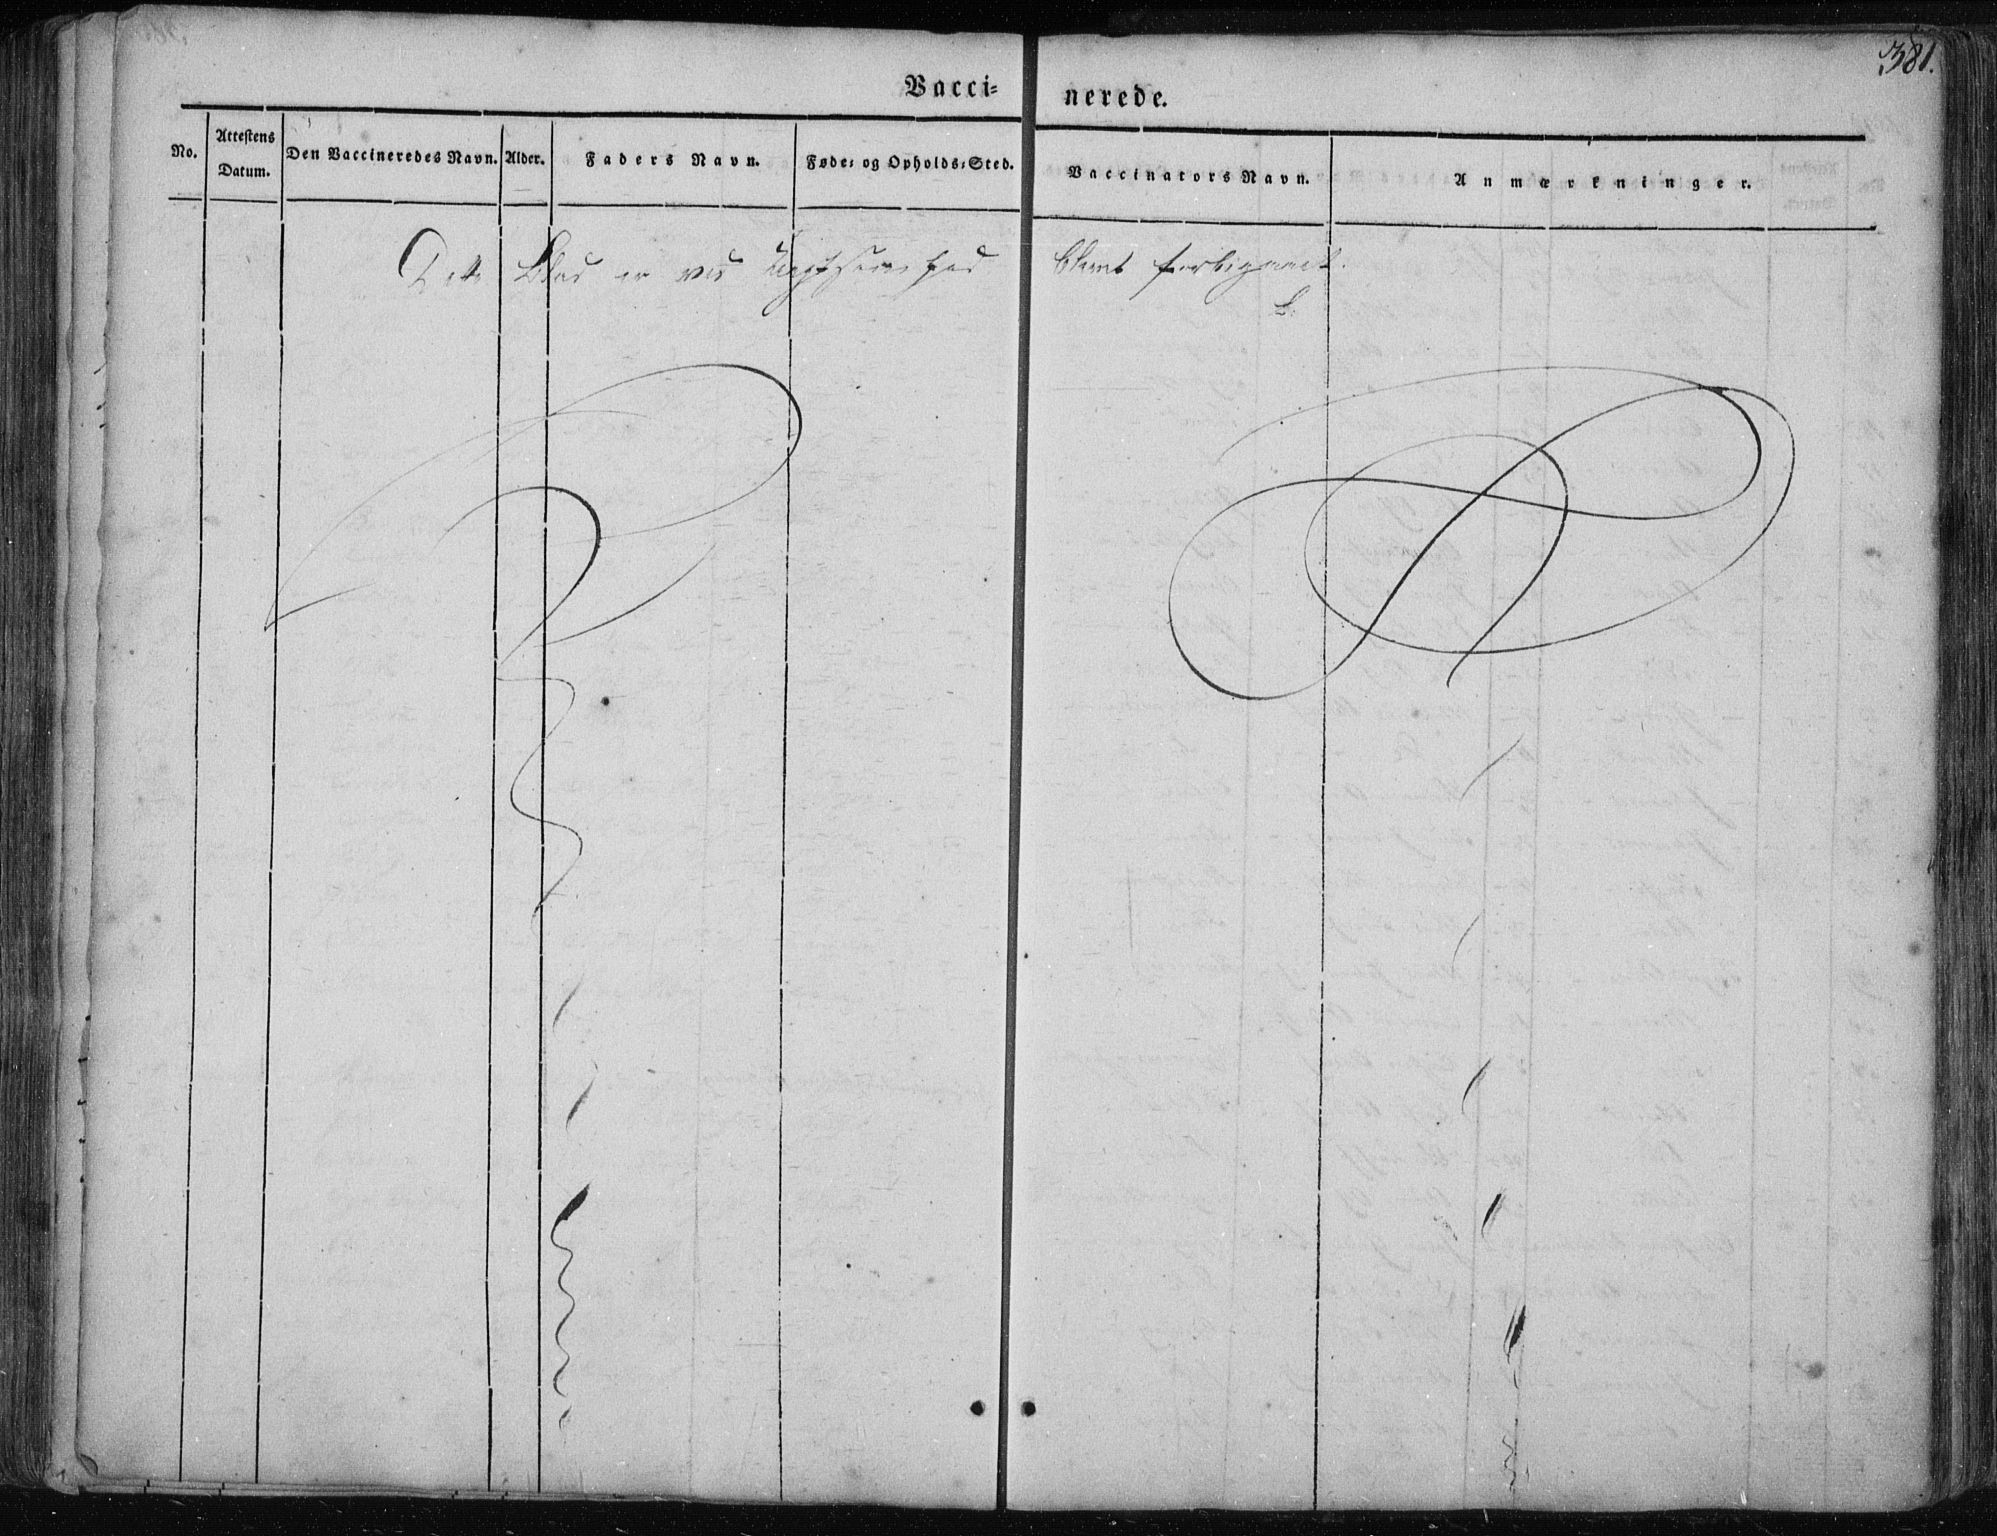 381.
Vacci= nerede.
No. Attestens Datum. Den Vaccineredes Navn. Alder. Faders Navn. Føde= og Opholds=Sted. Vaccinators Navn. Anmærkninger.
Dette Blad er ved Uagtsomhed blevet forbigaaet.
L.